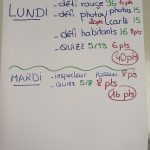 LUNDI
- défi rouge 36 6 pts
- défi photos photos 15
carte 15
- défi habitants 16 8 pts
- QUIZZ 5/13 6 pts
40 pts
MARDI
- inspecteur Poisseau 8 pts
- QUIZZ 5/8 8 pts
16 pts